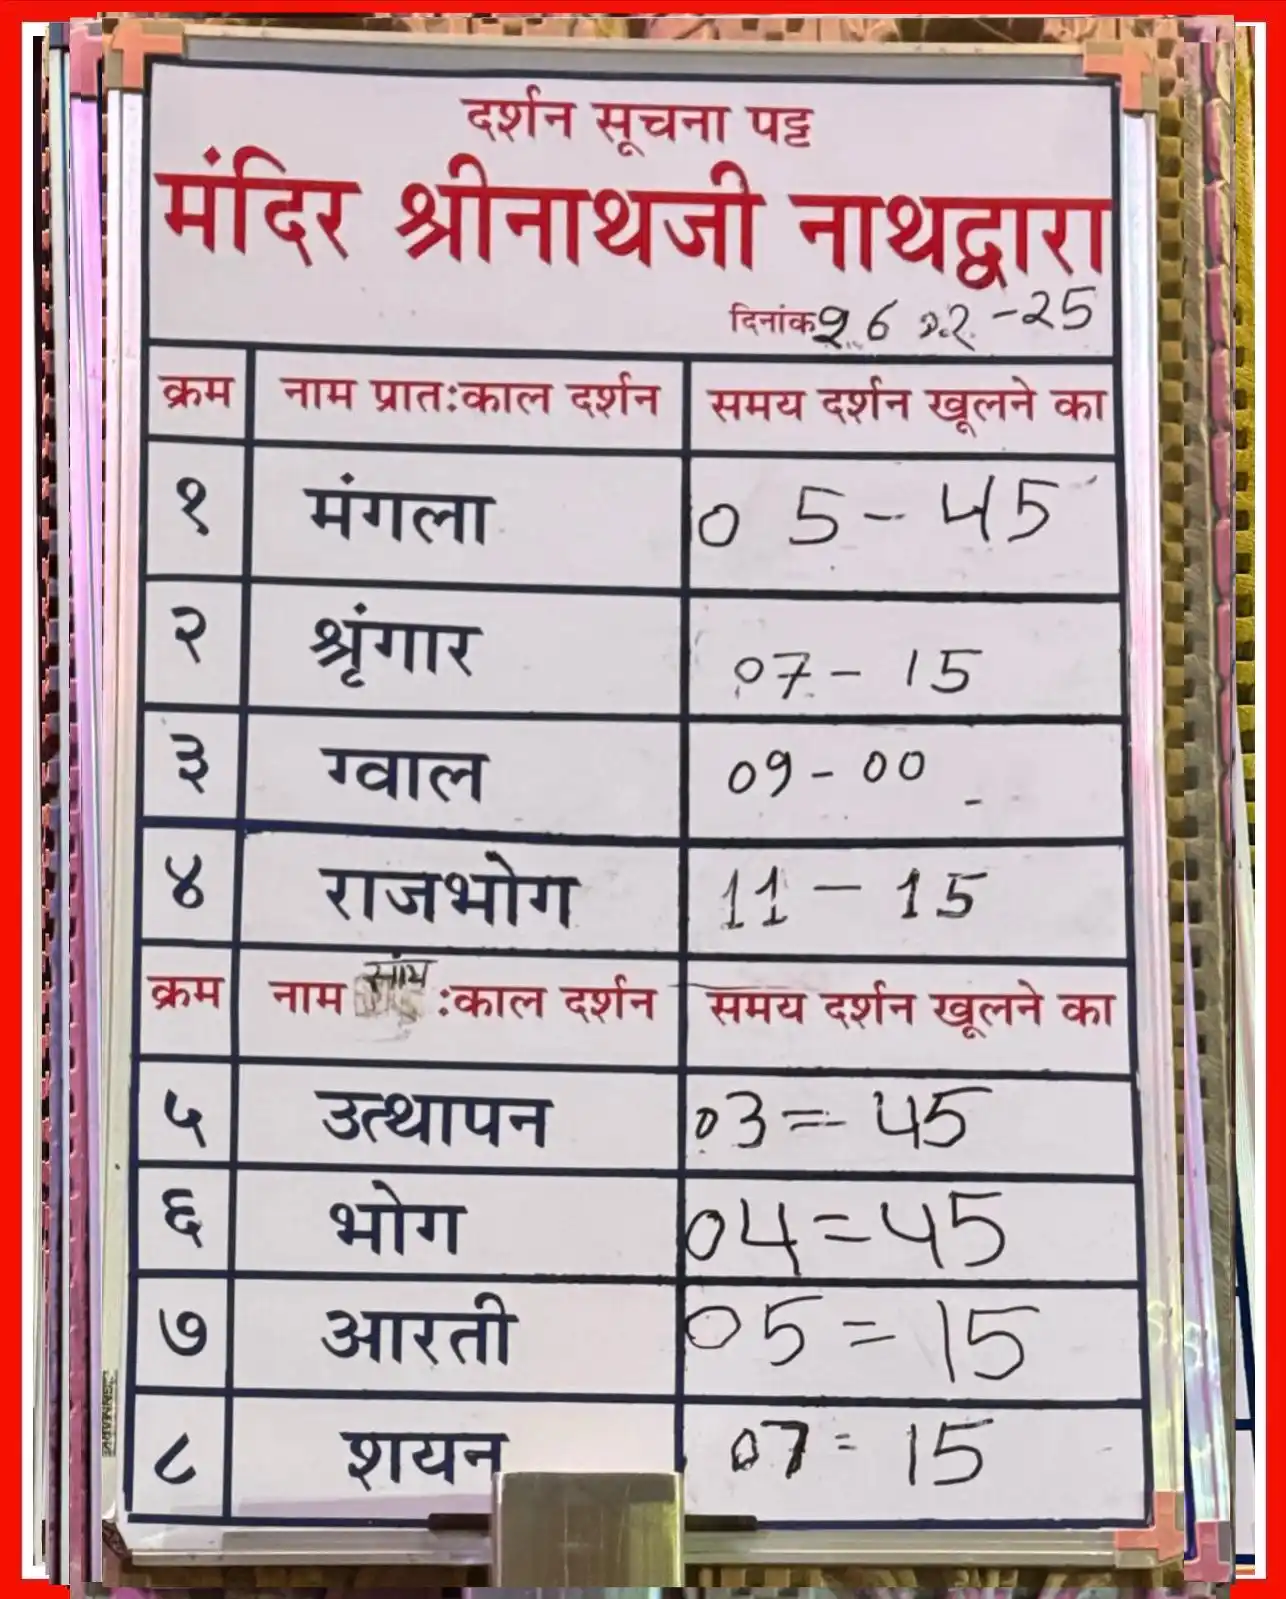 दर्शन सूचना पट्ट
मंदिर श्रीनाथजी नाथद्वारा
दिनांक 26 -25
क्रम नाम प्रातःकाल दर्शन समय दर्शन खूलने का
१ मंगला 05-45
२ श्रृंगार 07-15
३ ग्वाल 09-00
४ राजभोग 11-15
क्रम नाम सांय :काल दर्शन समय दर्शन खूलने का
५ उत्थापन 03=45
६ भोग 04=45
७ आरती 05=15
८ शयन 07=15